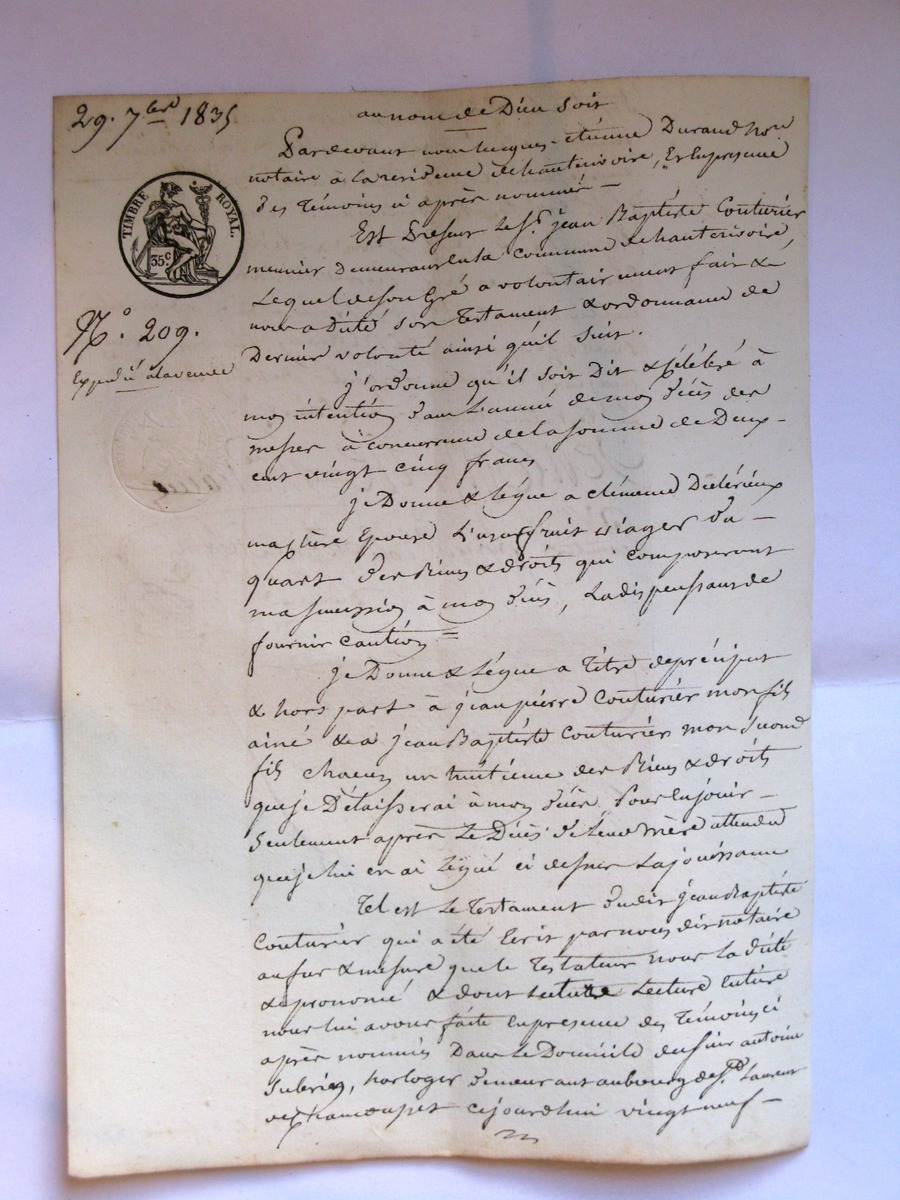 29. 7bre 1835
TIMBRE ROYAL.
35 c
N.º 209.
Expedié à la veuve
au nom de Dieu soit
Pardevant nous hugues-étienne Durand nre
notaire à la residence de hauterivoire, Et En presence
des Témoins ci après nommés —
Est Présent Le Sr. jean Baptiste Couturier
meunier demeurant en la Commune de hauterivoire,
Lequel de son Gré a volontairement fait &
nous a dicté son Testament & ordonnance de
Derniere volonté ainsi qu'il suit.
j'ordonne qu'il soit Dit & célébré à
mon intention dans L'année de mon décès des
messes à concurrence de la somme de Deux-
cent vingt cinq francs
je Donne & Légue a clémence
ma chère Epouse L'usufruit viager du —
quart des Biens & droits qui composeront
ma succession à mon décès, La dispensant de
fournir caution =
je Donne & Légue a Titre de préciput
& hors part à jean pierre Couturier mon fils
ainé & a jean Baptiste Couturier mon second
fils chacun un huitieme des Biens & droits
que je Délaisserai à mon décès, Pour En jouir —
seulement après Le Décès de Leur Mère attendu
que je lui en ai Légué ci dessus La jouissance
Tel est Le Testament dudit jean Baptiste
Couturier qui a été Ecrit par nous dit notaire
au fur & mesure que le Testateur nous La dicté
& prononcé & dont Lecture Lecture Entière
nous lui avons faite En presence des Témoins ci
après nommés Dans Le Domicile du sieur antoine
horloger demeurant au bourg de St. Laurent
de chamousset cejourd'hui vingt neuf —